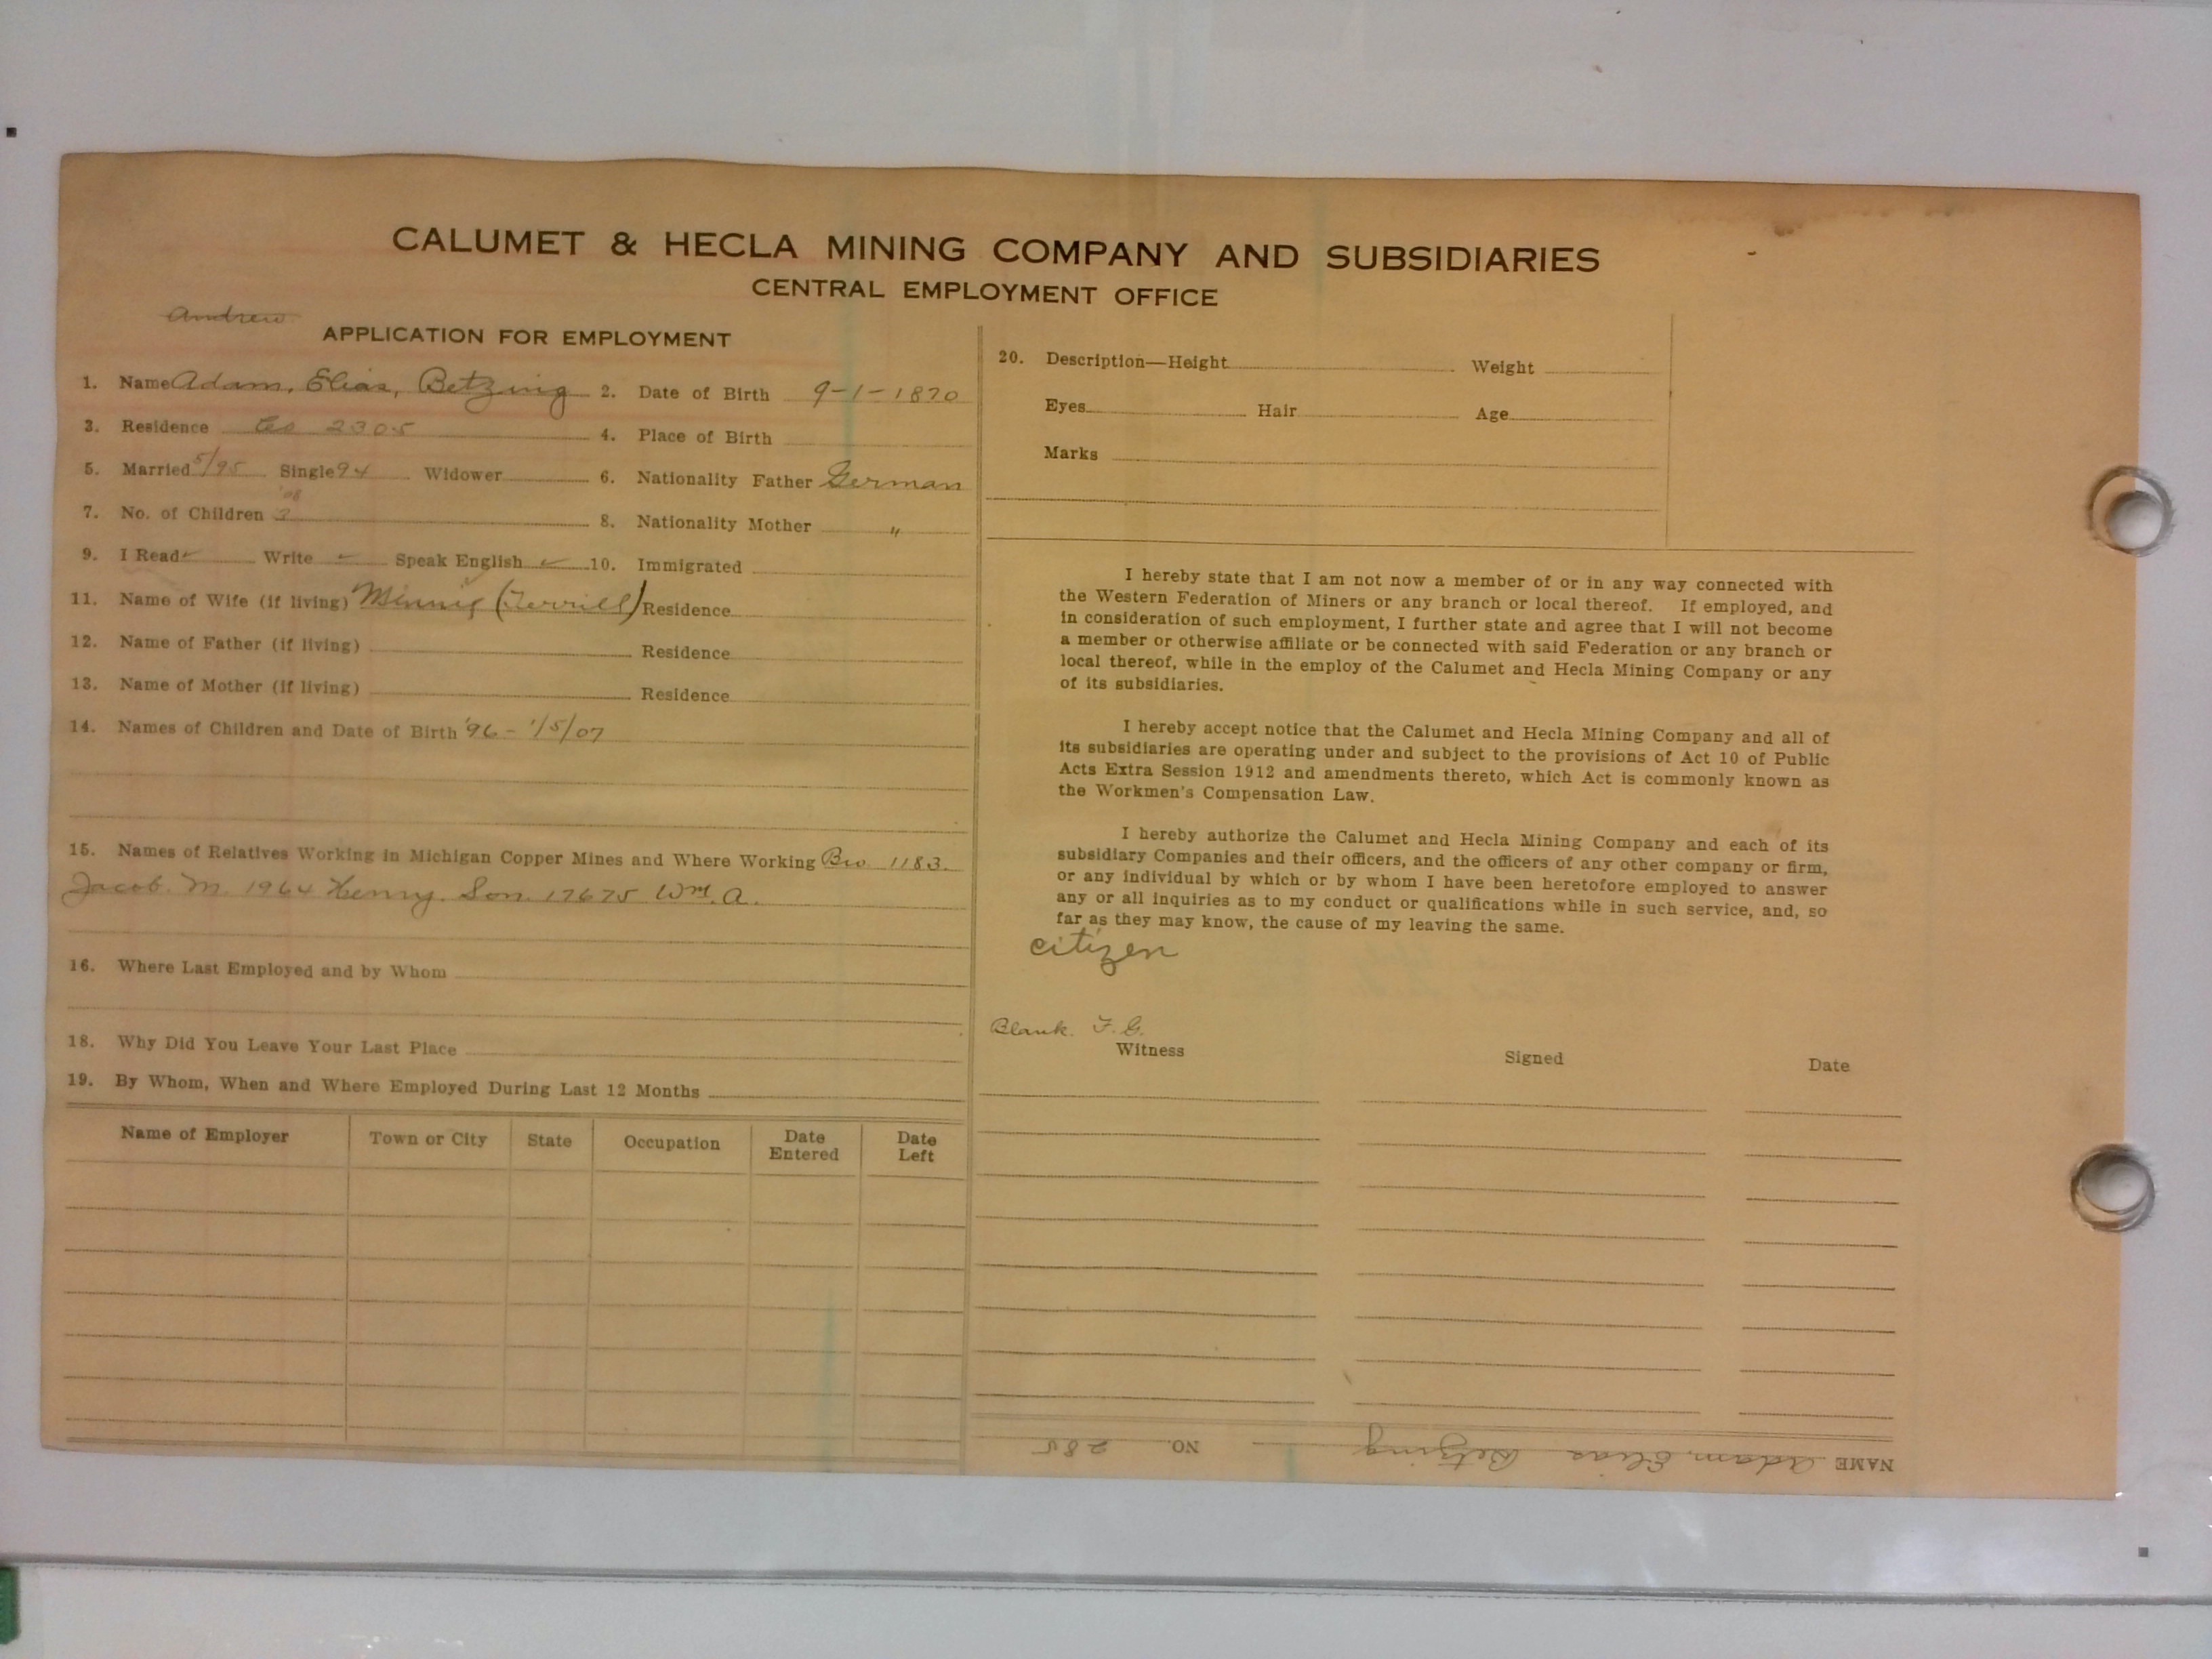 CALUMET & HECLA MINING COMPANY AND SUBSIDIARIES
CENTRAL EMPLOYMENT OFFICE
Andrew
APPLICATION FOR EMPLOYMENT
1. Name Adam, Elias, Betzing 2. Date of Birth 9-1-1870
3. Residence Co 2305 4. Place of Birth
5. Married 5/95 Single 94 Widower 6. Nationality Father German
'08
7. No. of Children 3 8. Nationality Mother "
9. I Read ✓ Write ✓ Speak English ✓ 10. Immigrated
11. Name of Wife (if living) Minnie (Terrill) Residence
12. Name of Father (if living) Residence
13. Name of Mother (if living) Residence
14. Names of Children and Date of Birth '96 - 1/5/07
15. Names of Relatives Working in Michigan Copper Mines and Where Working Bro 1183.
Jacob. M. 1964 Henry. Son. 17675 Wm. A.
16. Where Last Employed and by Whom
18. Why Did You Leave Your Last Place
19. By Whom, When and Where Employed During Last 12 Months
Name of Employer Town or City State Occupation Date Entered Date Left
20. Description—Height Weight
Eyes Hair Age
Marks
I hereby state that I am not now a member of or in any way connected with
the Western Federation of Miners or any branch or local thereof. If employed, and
in consideration of such employment, I further state and agree that I will not become
a member or otherwise affiliate or be connected with said Federation or any branch or
local thereof, while in the employ of the Calumet and Hecla Mining Company or any
of its subsidiaries.
I hereby accept notice that the Calumet and Hecla Mining Company and all of
its subsidiaries are operating under and subject to the provisions of Act 10 of Public
Acts Extra Session 1912 and amendments thereto, which Act is commonly known as
the Workmen's Compensation Law.
I hereby authorize the Calumet and Hecla Mining Company and each of its
subsidiary Companies and their officers, and the officers of any other company or firm,
or any individual by which or by whom I have been heretofore employed to answer
any or all inquiries as to my conduct or qualifications while in such service, and, so
far as they may know, the cause of my leaving the same.
citizen
Blank. F. G.
Witness Signed Date
NAME Adam, Elias Betzing NO. 285